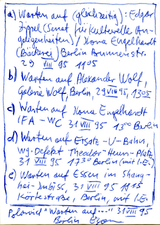 a) Warten auf (gleichzeitig): Edgar
Appel (Senat für kulturelle An-
gelegenheiten) / Xona Engelhardt
(Bäckerei) Berlin Brunnenstr.
29 VIII 95 1105
b) Warten auf Alexander Wolf,
Galerie Wolf, Berlin 29 VIII 95 1305
c) Warten auf Xona Engelhardt
IFA-WC 31 VIII 95 Berlin
d) Warten auf Ersatz-U-Bahn,
wg. Defekt Theodor-Heuss-Platz
31 VIII 95 Berlin (mit I.E.)
e) Warten auf Essen im Shang-
hai-Imbiss, 31 VIII 95 1115
Kantstraße, Berlin, mit I.E.
"Warten auf..." 31 VIII 95
Berlin